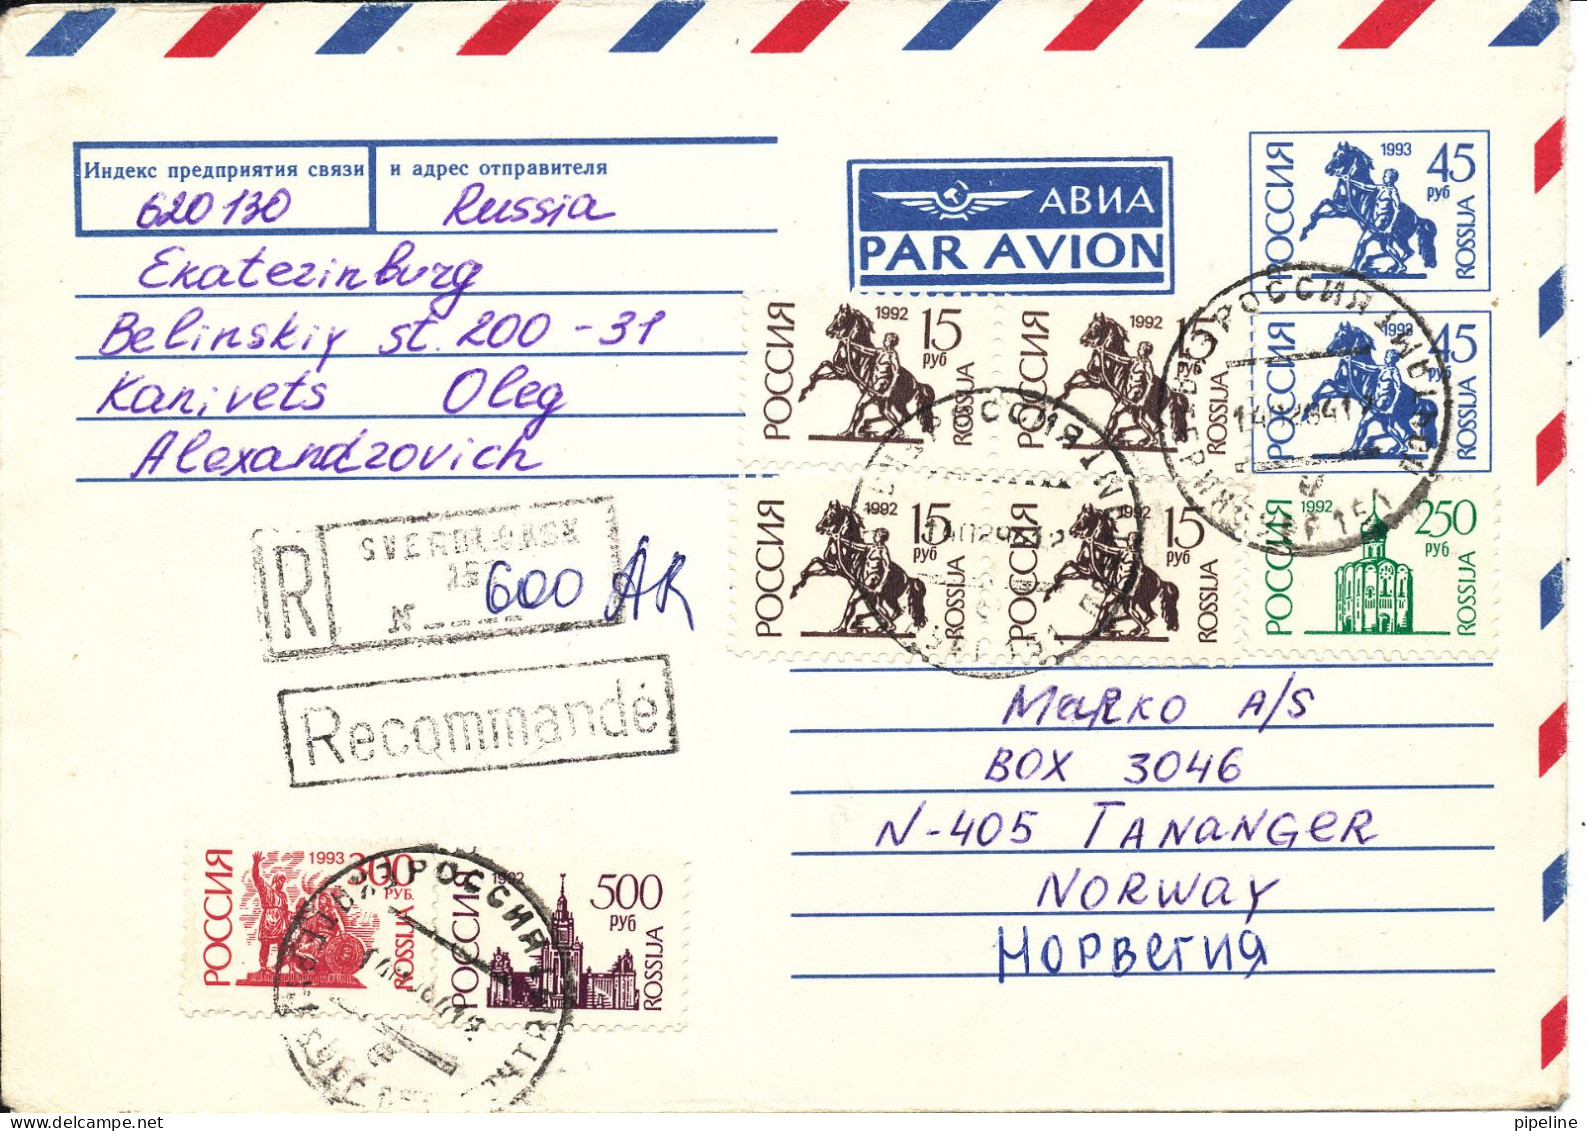 Индекс предприятия связи
и адрес отправителя
620130
Russia
Ekaterinburg
Belinskiy st. 200 - 31
Kanivets Oleg
Alexandrovich
АВИА
PAR AVION
РОССИЯ 1993 45 руб ROSSIJA
РОССИЯ 1993 45 руб ROSSIJA
РОССИЯ 1992 15 руб ROSSIJA
РОССИЯ 1992 15 руб ROSSIJA
РОССИЯ 1992 15 руб ROSSIJA
РОССИЯ 1992 15 руб ROSSIJA
РОССИЯ 1992 250 руб ROSSIJA
R
SVERDLOVSK
N
600 AR
Recommandé
Marko A/S
BOX 3046
N-405 TANANGER
NORWAY
Норвегия
РОССИЯ 1993 300 РУБ. ROSSIJA
РОССИЯ 1992 500 руб ROSSIJA
РОССИЯ
РОССИЯ
РОССИЯ
pipeline